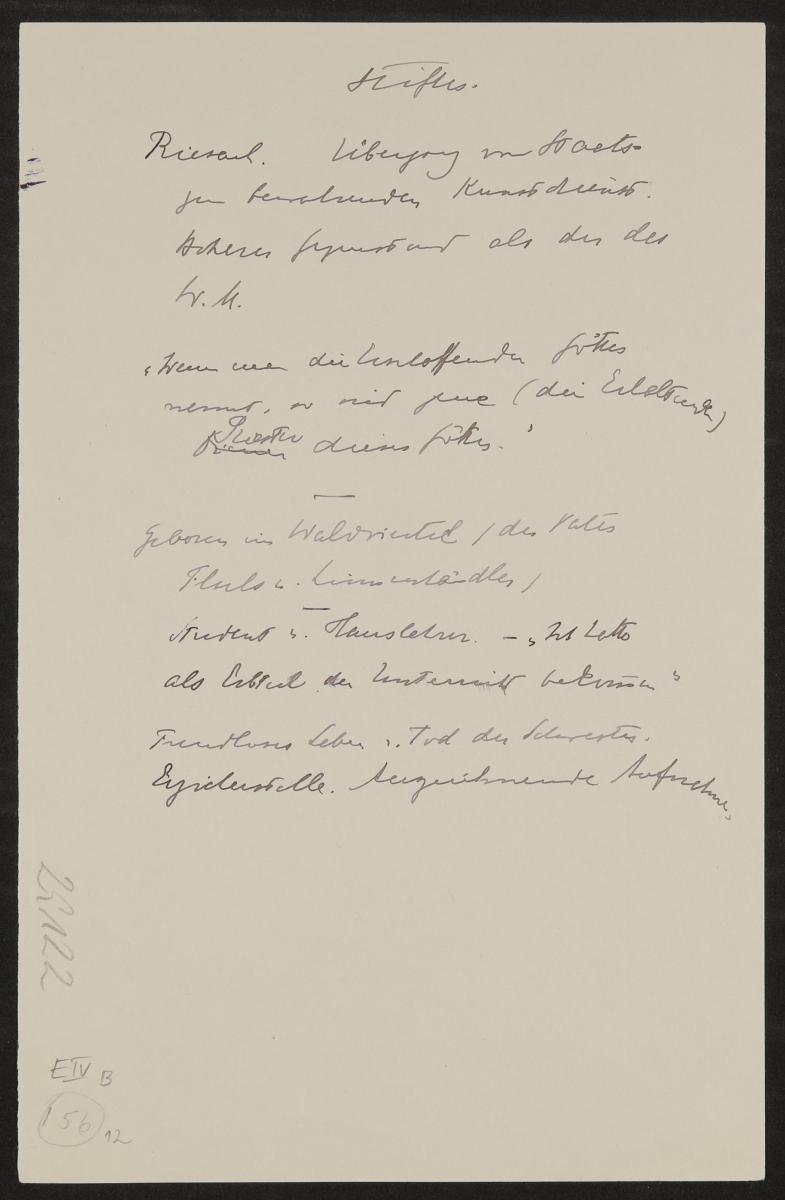 Stifter.
Risach. Übergang vom Staats-
zum bewahrenden Kunstdienst.
Höherer Gegenstand als der des
W. M.
„Wenn man die Urschaffenden Götter
nennt, so sind jene (die Erhaltenden)
Priester
dieser Götter."
Geboren im Waldviertel / der Vater
Flachs u. Leinenhändler /
Student u. Hauslehrer. – „Ich hatte
als Erbteil den Unterricht bekommen"
Freudloses Leben u. Tod der Schwester.
Erzieherstelle. Auszeichnende Aufnahme.
28122
E IV B
156
12